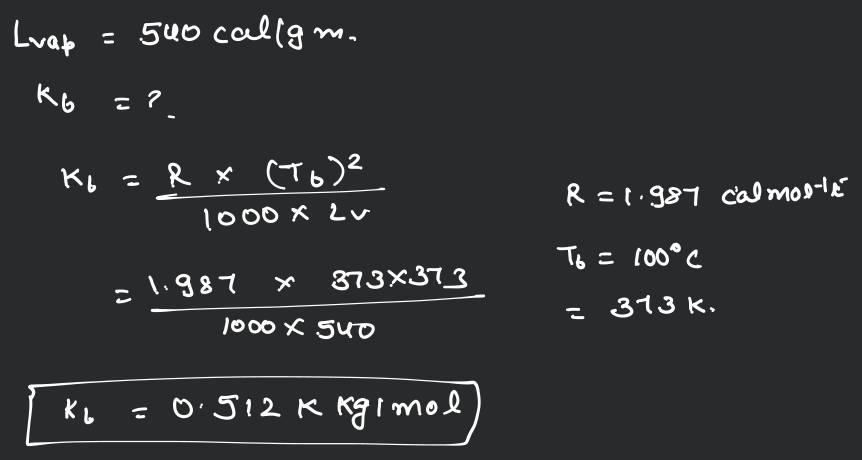 Lvap = 540 cal/gm.
Kb = ?
Kb = R × (Tb)²
1000 × Lv
R = 1.987 cal mol-1 K-
Tb = 100°C
= 373 K.
= 1.987 × 373×373
1000 × 540
Kb = 0.512 K Kg/mol